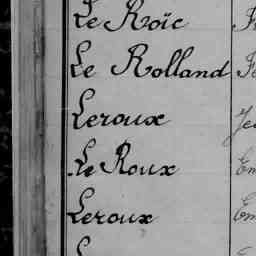 Le Roïc
Le Rolland
Leroux
Le Roux
Leroux